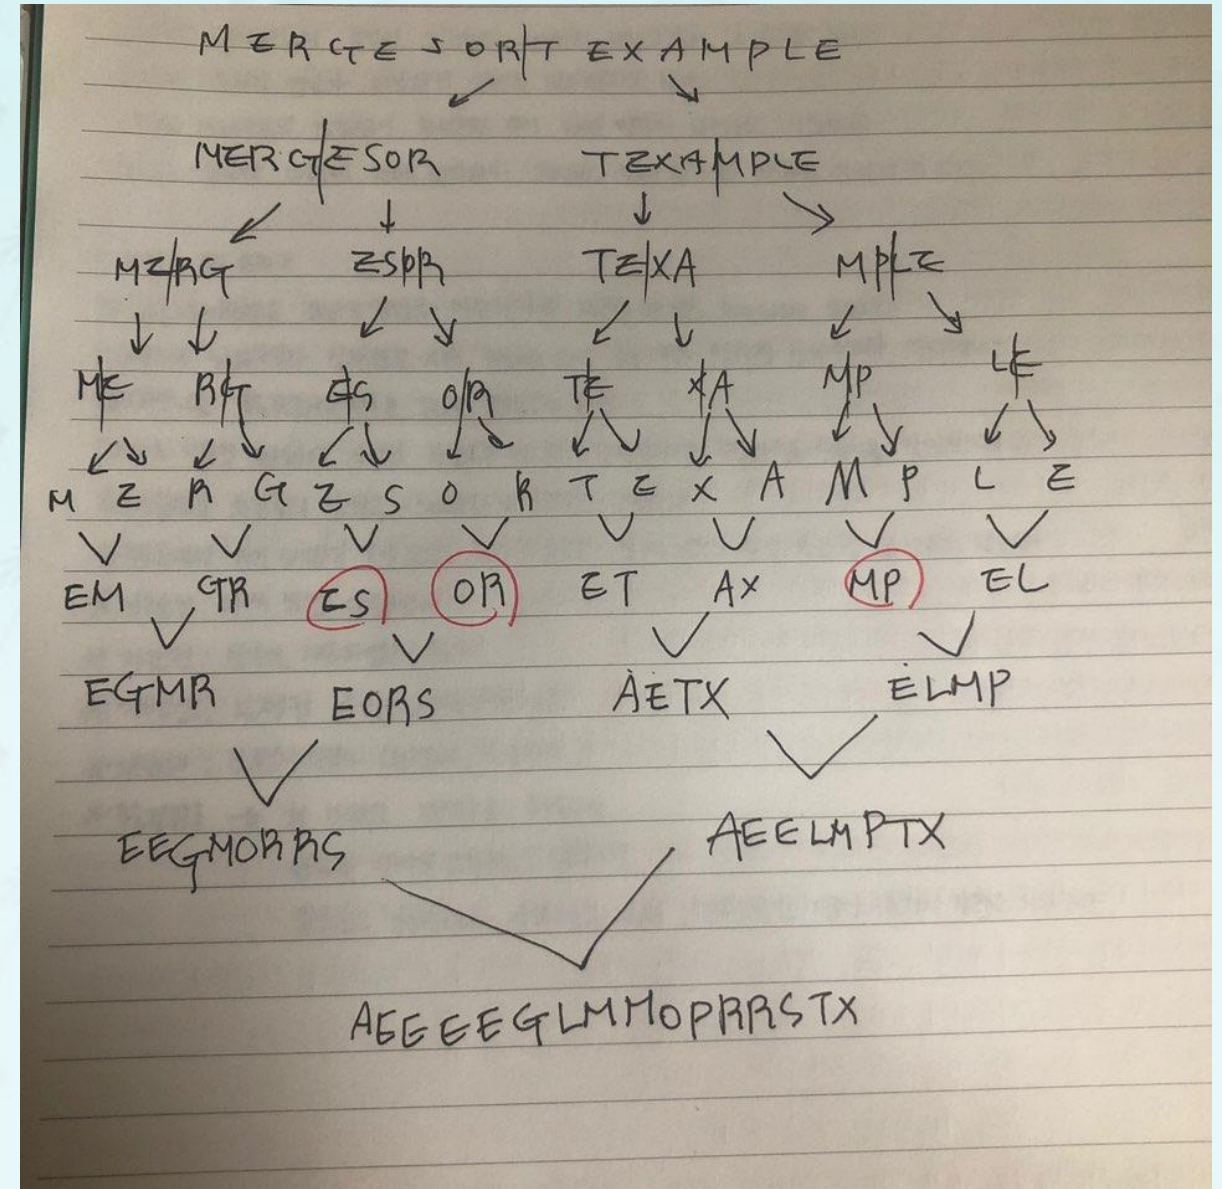 MERGE SORT EXAMPLE
MERGESOR TEXAMPLE
MERG ESOR TEXA MPLE
ME RG ES OR TE XA MP LE
M E R G E S O R T E X A M P L E
EM GR ES OR ET AX MP EL
EGMR EORS AETX ELMP
EEGMORRS AEELMPTX
AEEEEGLMMOPRRSTX